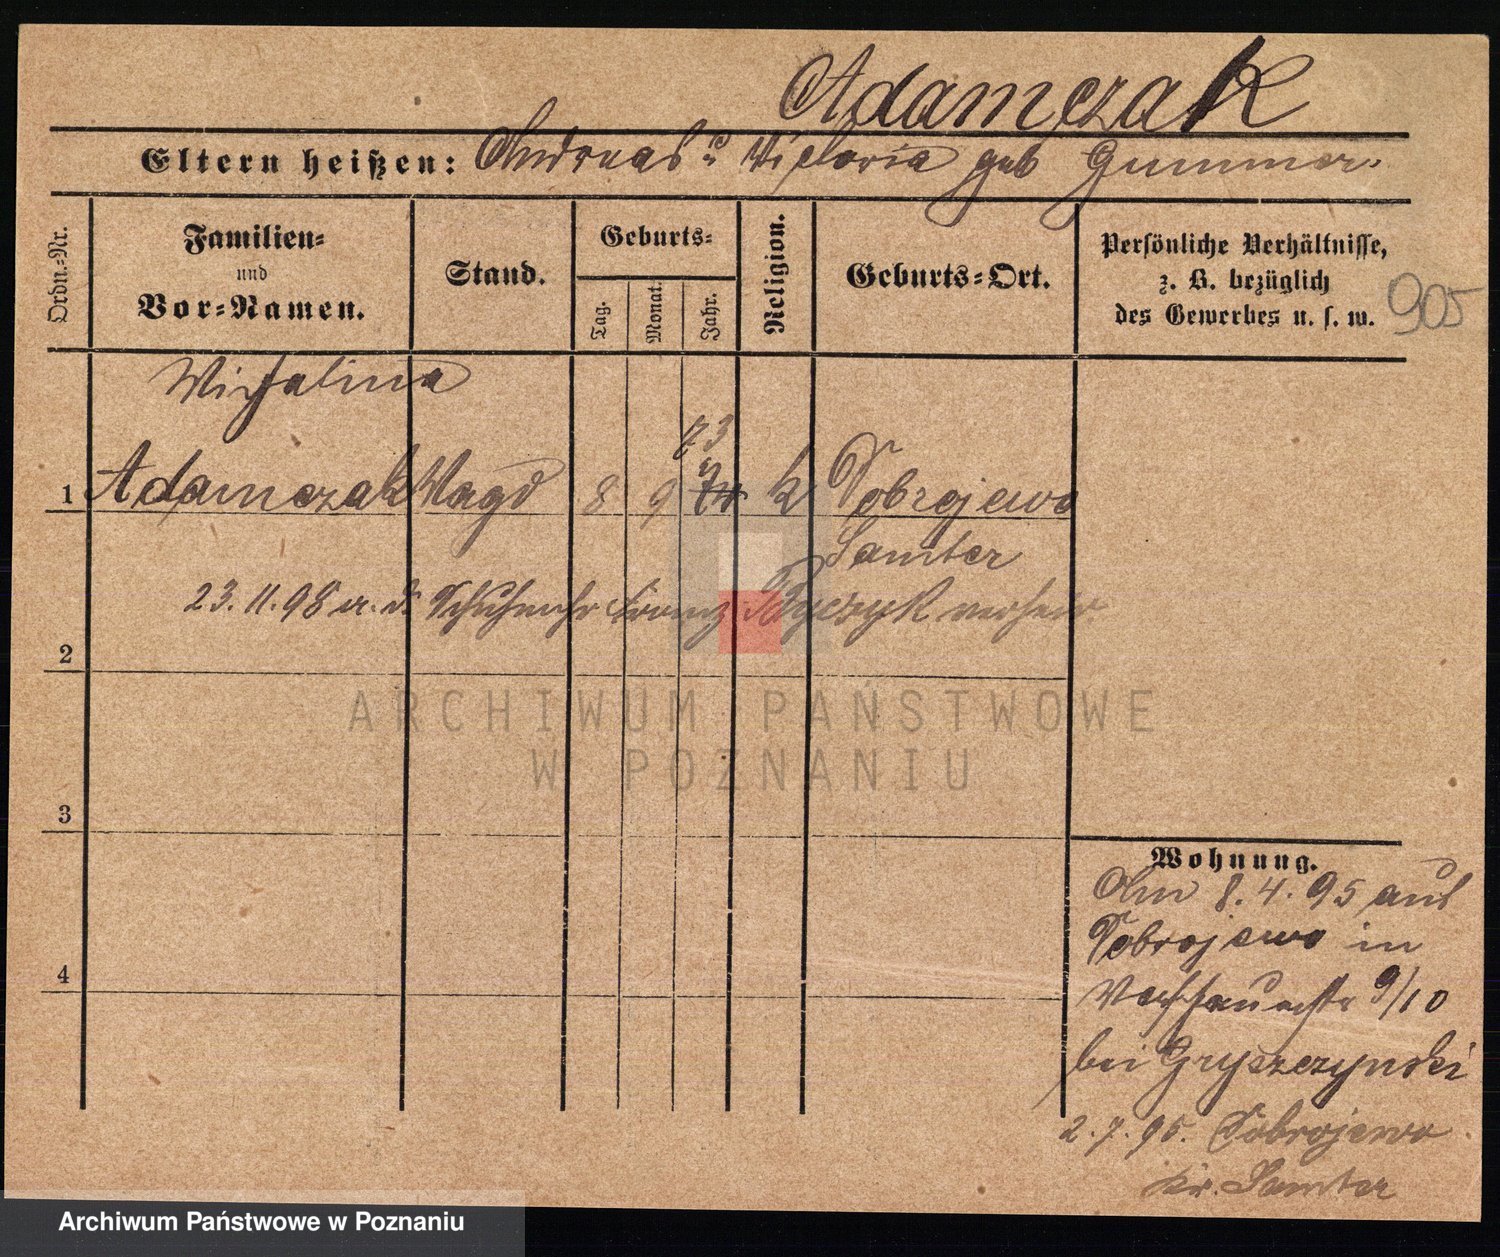 Adamczak
Eltern heißen: Andreas u Victoria geb Gummer.
Ordn.-Nr.
Familien-
und
Vor-Namen.
Stand.
Geburts-
Tag.
Monat.
Jahr.
Religion.
Geburts-Ort.
Persönliche Verhältnisse,
z. B. bezüglich
des Gewerbes u. s. w.
905
Michalina
73
1 Adamczak Magd 8 9 74 k Dobrojewo
Samter
23. 11. 98 a. d. Schuhmchr Franz verheir.
2
3
4
Wohnung.
Am 8. 4. 95 aus
Dobrojewo in
9/10
bei Gryszczynski
2. 7. 95. Dobrojewo
Kr. Samter
ARCHIWUM PAŃSTWOWE
W POZNANIU
Archiwum Państwowe w Poznaniu